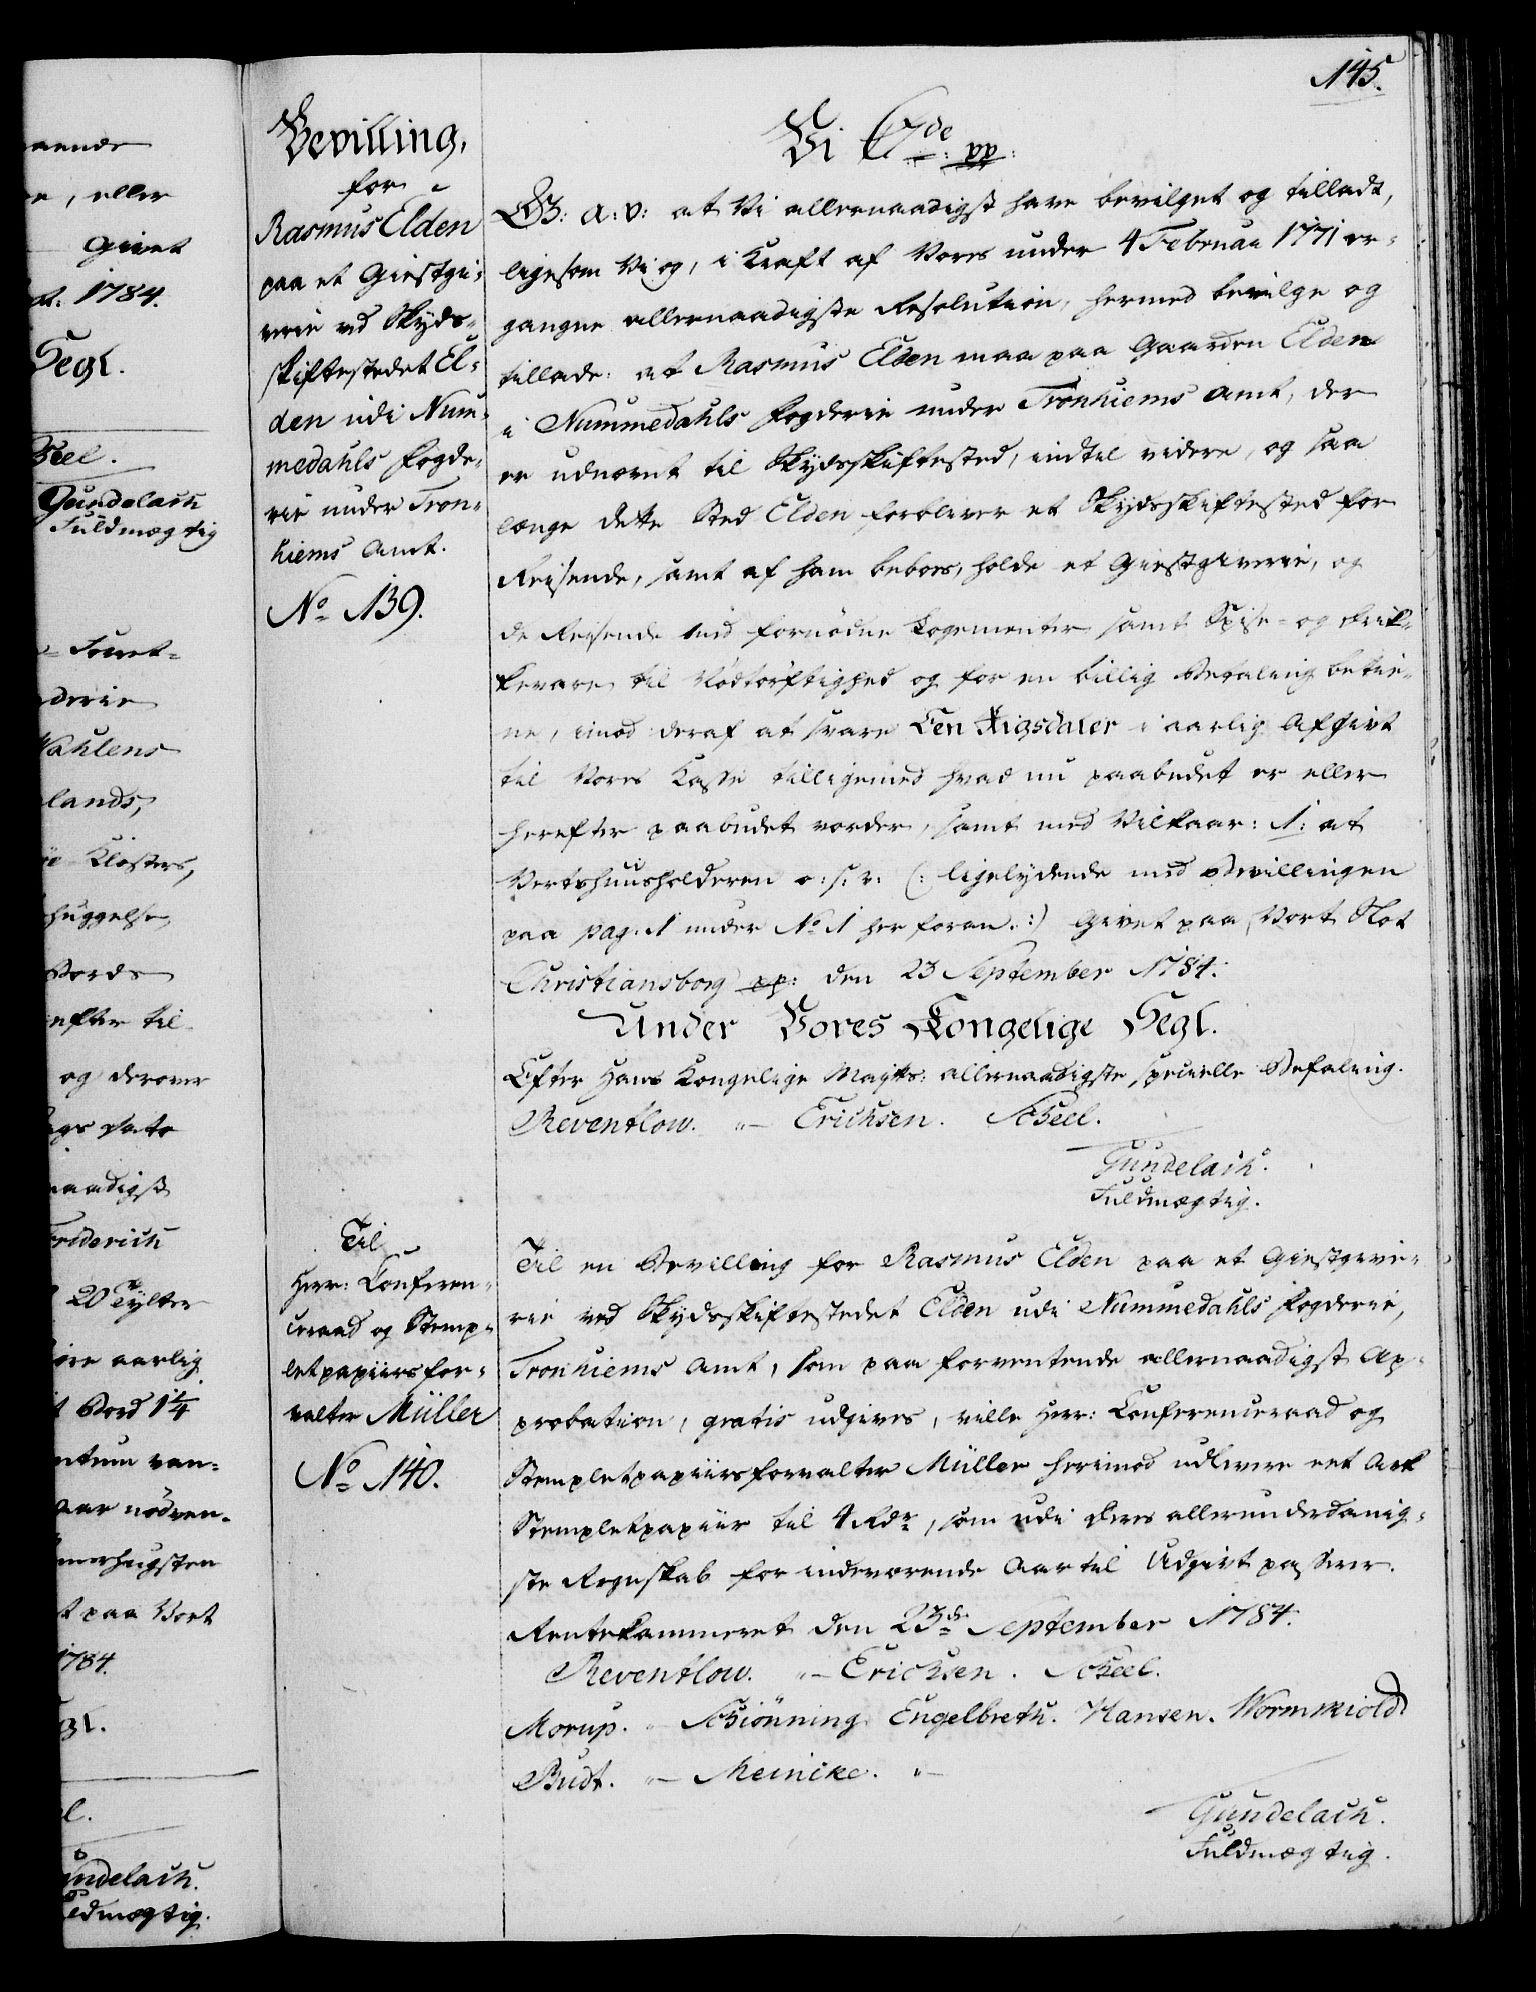 145.
Bevilling,
for
Rasmus Elden
paa et Giestgi-
verie ved Skyds-
skiftestedet El-
den udi Num-
medahls Fogde-
rie under Tron-
hiems Amt.
No 139.
Vi C7de pp:
G: a: v: at Vi allernaadigst have bevilget og tilladt,
ligesom Vi og, i Kraft af Vores under 4 Februar 1771 er-
gangne allernaadigste Resolution, hermed bevilge og
tillade: at Rasmus Elden maa paa Gaarden Elden
i Nummedahls Fogderie under Tronhiems Amt, der
er udnævnt til Skydsskiftested, indtil videre, og saa
længe dette Sted Elden forbliver et Skydsskiftested for
Reisende, samt af ham beboes, holde et Giestgiverie, og
de Reisende med fornødne Logementer samt Spise- og Drik-
kevare til Nødtørftighed og for en billig Betaling betie-
ne, imod deraf at svare Een Rigsdaler i aarlig Afgivt
til Vores Kasse tilligemed hvad nu paabudet er eller
herefter paabudet vorder, samt med Vilkaar: 1: at
Vertshuusholderen o: s: v: (: ligelydende med Bevillingen
paa pag. 1 under No 1 her foran. :) Givet paa Vort Slot
Christiansborg pp: den 23 September 1784.
Under Vores Kongelige Segl.
Efter Hans Kongelige Majtts: allernaadigste specielle Befaling.
Reventlow. "- Erichsen. Scheel.
Gundelach.
Fuldmægtig.
Til
Herr: Conferen-
ceraad og Stemp-
letpapiirsfor-
valter Müller
No 140.
Til en Bevilling for Rasmus Elden paa et Giestgive-
rie ved Skydsskiftestedet Elden udi Nummedahls Fogderie,
Tronhiems Amt, som paa forventende allernaadigst Ap-
probation, gratis udgives, ville Herr: Conferenceraad og
Stempletpapiirsforvalter Müller herimod udlevere eet Ark
Stempletpapiir til 4 Rdr, som udi Deres allerunderdanig-
ste Regnskab for indeværende Aar til Udgivt passerer.
Rentekammeret den 23de September 1784.
Reventlow. "- Erichsen. Scheel.
Morup. " Schiønning Engelbreth. Hansen. Wormskiold
Budt. "- Meinicke. "-
Gundelach.
Fuldmægtig.